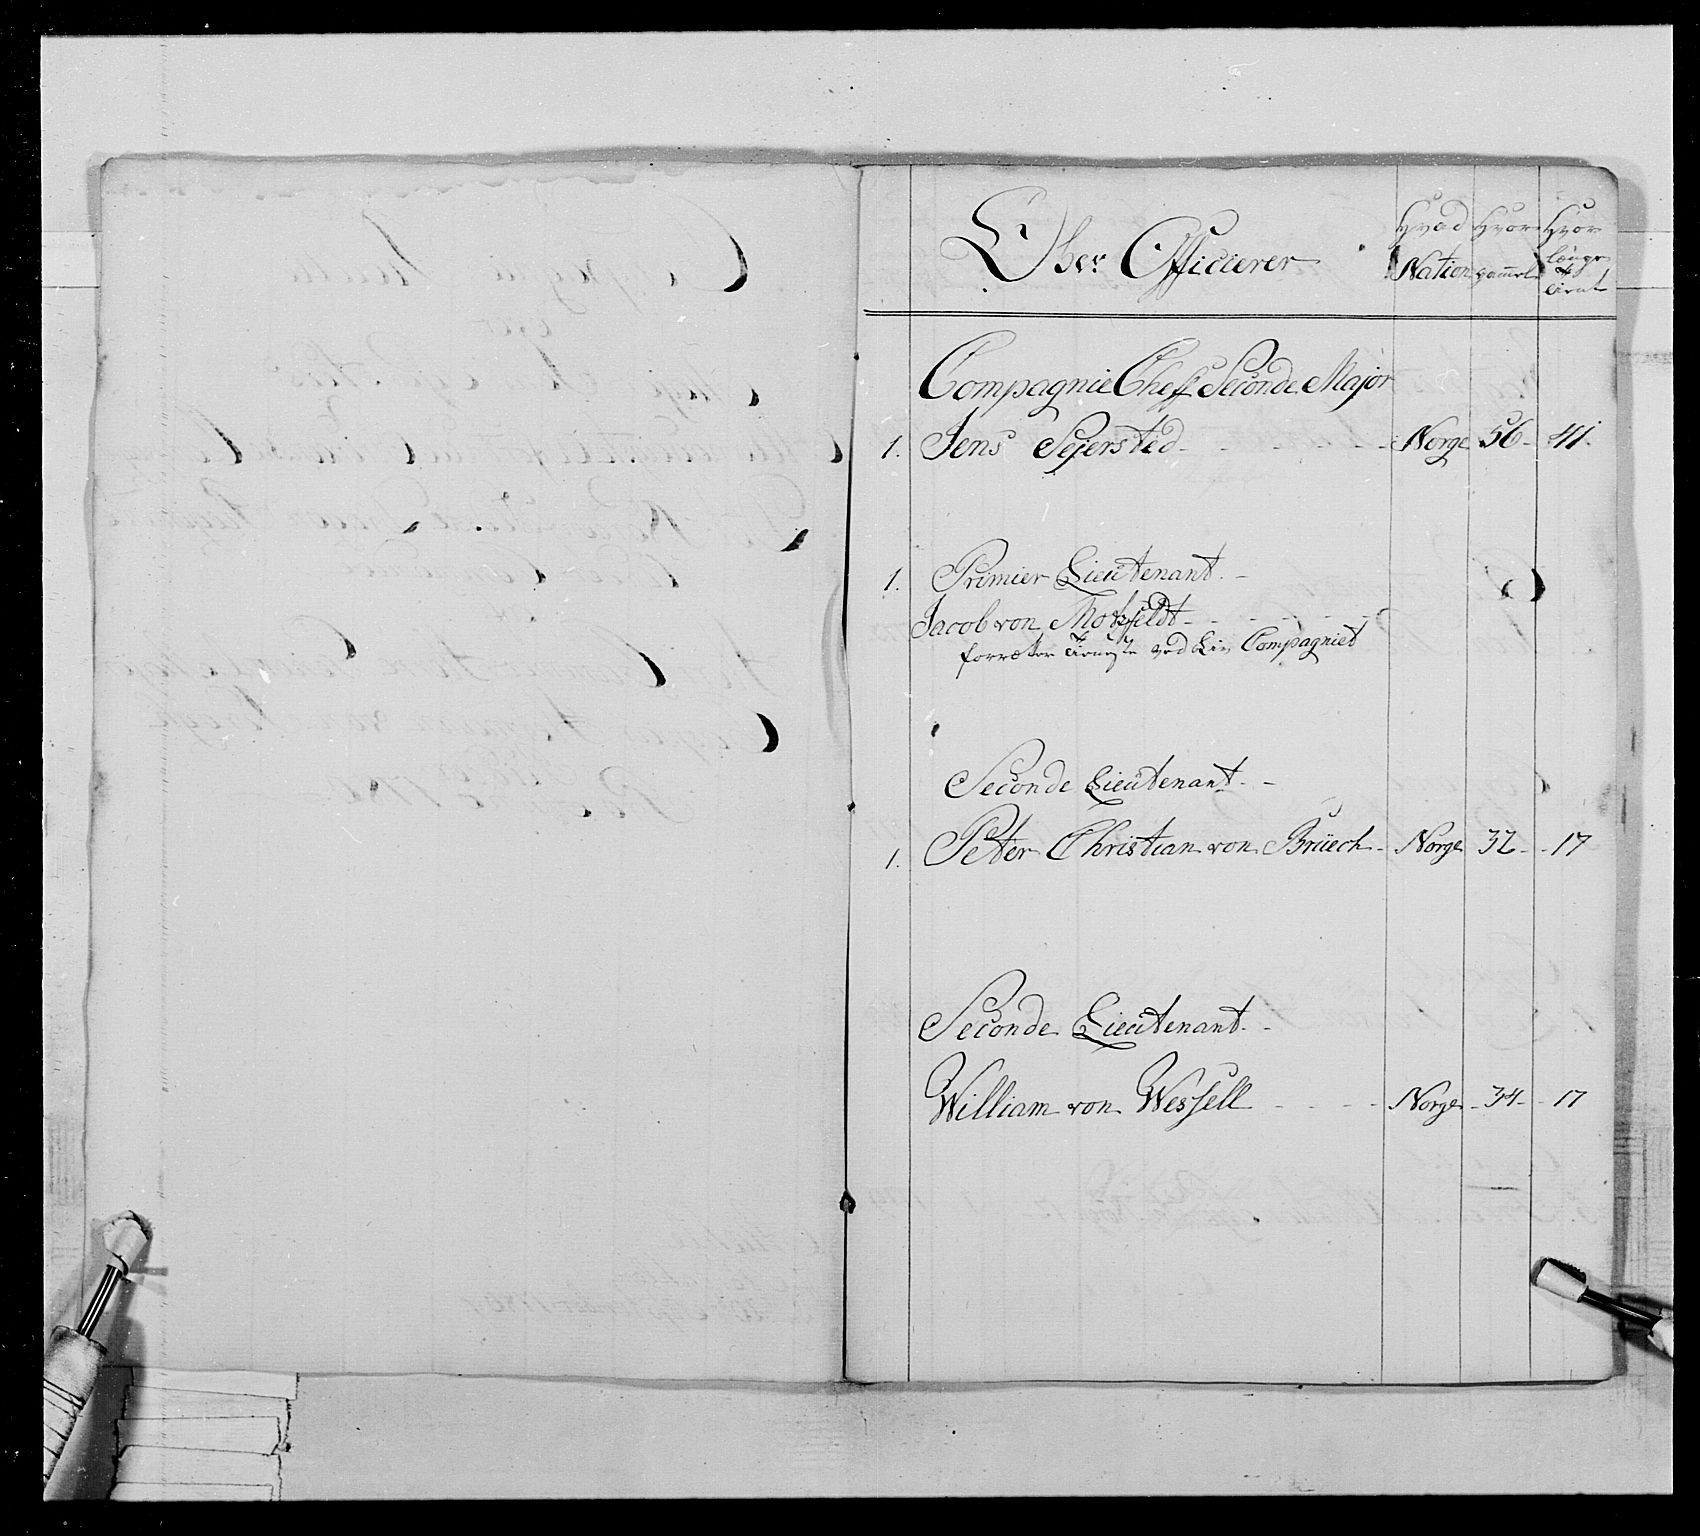 Ober Officierer
Hvad Nation
Hvor gammel
Hvor længe tient
Compagnie Cheff Seconde Major
1. Jens Sejersted Norge 56 41
1. Primier Lieutenant
Jacob von Motzfeldt
forretter tieneste ved Liv Compagniet
Seconde Lieutenant
1. Peter Christian von Brüech Norge 32 17
Seconde Lieutenant
William von Wessell Norge 34 17